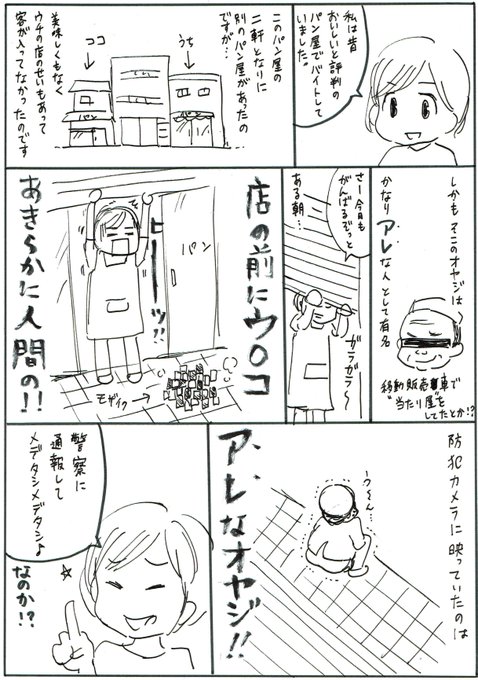 私は昔
おいしいと評判の
パン屋でバイトして
いました。
このパン屋の
二軒となりに
別のパン屋があったの
ですが…
うち
ココ
パン
美味しくもなく
ウチの店のせいもあって
客が入ってなかったのです
しかも そこのオヤジは
かなりアレな人として有名
移動販売車で
"当たり屋"を
してたとか!?
さー今日も
がんばるぞっと
ある朝…
ガラガラ〜
店の前にウ○コ
パン
ヒーーッ!!
モザイク
あきらかに人間の!!
防犯カメラに映っていたのは
う〜ん…
アレなオヤジ!!
警察に
通報して
メデタシメデタシ♪
なのか!?